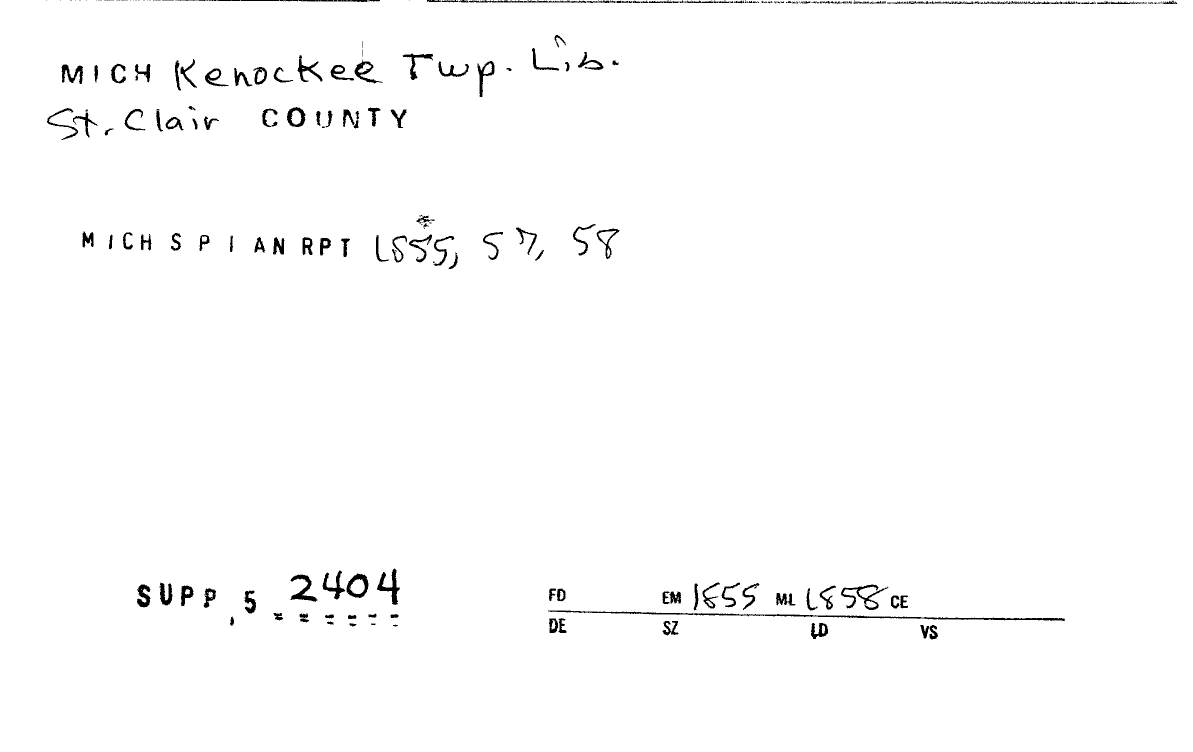 MICH Kenockee Twp. Lib.
St. Clair COUNTY
*
MICH S P I AN RPT 1855, 57, 58
SUPP, 5 2404
FD EM 1855 ML 1858 CE
DE SZ LD VS